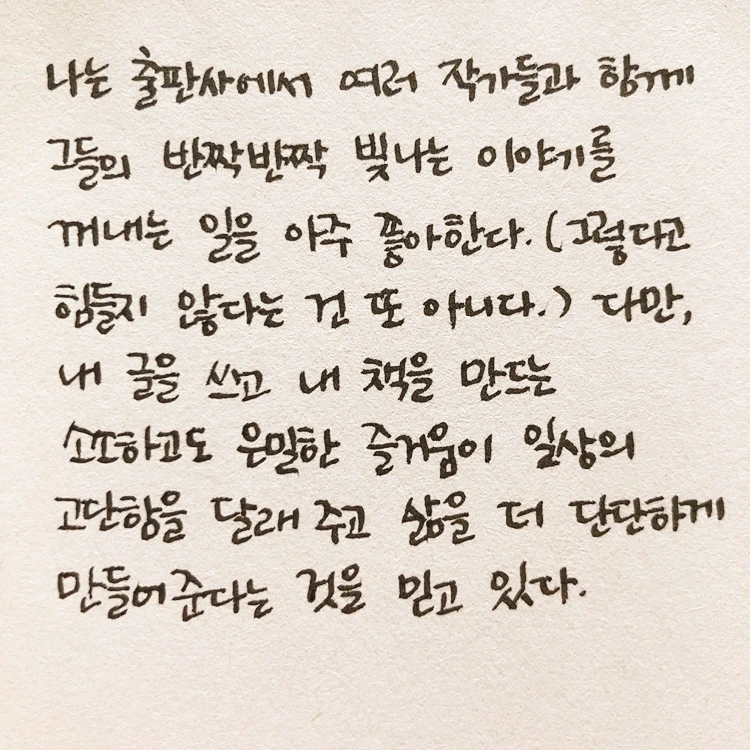 나는 출판사에서 여러 작가들과 함께
그들의 반짝반짝 빛나는 이야기를
꺼내는 일을 아주 좋아한다. (그렇다고
힘들지 않다는 건 또 아니다.) 다만,
내 글을 쓰고 내 책을 만드는
소또하고도 은밀한 즐거움이 일상의
고단함을 달래 주고 삶을 더 단단하게
만들어준다는 것을 믿고 있다.